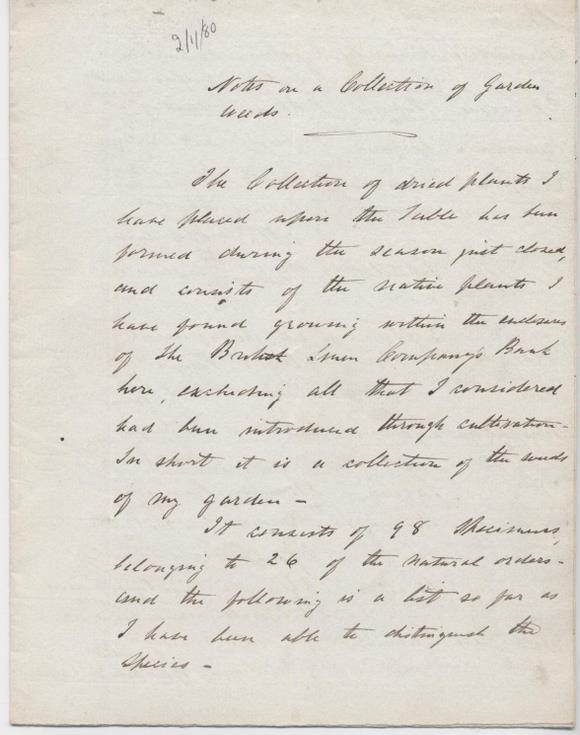 2/1/80
Notes on a Collection of Garden
Weeds.
The Collection of dried plants I
have placed upon the Table has been
formed during the season just closed,
and consists of the native plants I
have found growing within the enclosure
of The British Linen Company's Bank
here, excluding all that I considered
had been introduced through cultivation -
In short it is a collection of the weeds
of my garden -
It consists of 98 Specimens,
belonging to 26 of the natural orders -
and the following is a list so far as
I have been able to distinguish the
Species -